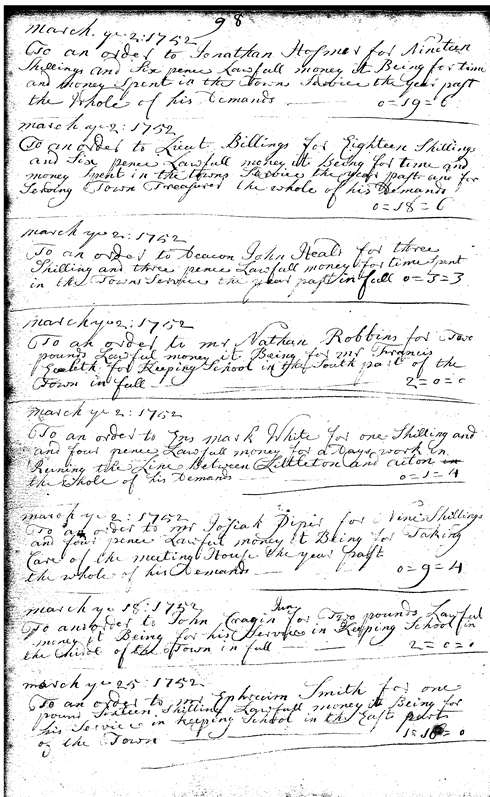 98
march ye 2: 1752
To an order to Jonathan Hosmer for Nineteen
Shillings and Six pence Lawfull money it Being for time
and money Spent in the Towns Service the year past
the Whole of his Demands 0=19=6
march ye 2: 1752
To an order to Lieut Billings for Eighteen Shillings
and Six pence Lawfull money it Being for time and
money Spent in the towns Service the year past and for
Serving Town Treasurer the whole of his Demands
0=18=6
march ye 2: 1752
To an order to Deacon John Heald for three
Shilling and three pence Lawfull money for time Spent
in the Towns Service the year past in full 0=3=3
march ye 2: 1752
To an order to mr Nathan Robbins for Two
pounds Lawful money it Being for mr Francis
for Keeping School in the South part of the
Town in full 2=0=0
march ye 2: 1752
To an order to Ens mark White for one Shilling and
and four pence Lawfull money for a Days work in
Runing the Line Between Littleton and acton
the whole of his Demands 0=1=4
march ye 2: 1752
To an order to mr Josiah Piper for Nine Shillings
and four pence Lawful money it Being for Taking
Care of the meeting House the year past
the whole of his Demands 0=9=4
march ye 18: 1752
To an order to John Cragin Juny for Two pounds Lawful
money it Being for his Service in Keeping School in
the of the Town in full 2=0=0
march ye 25: 1752
To an order to mr Ephreim Smith for one
pound Sixteen Shilling Lawfull money it Being for
his Service in keeping School in the East part
of the Town 1=16=0